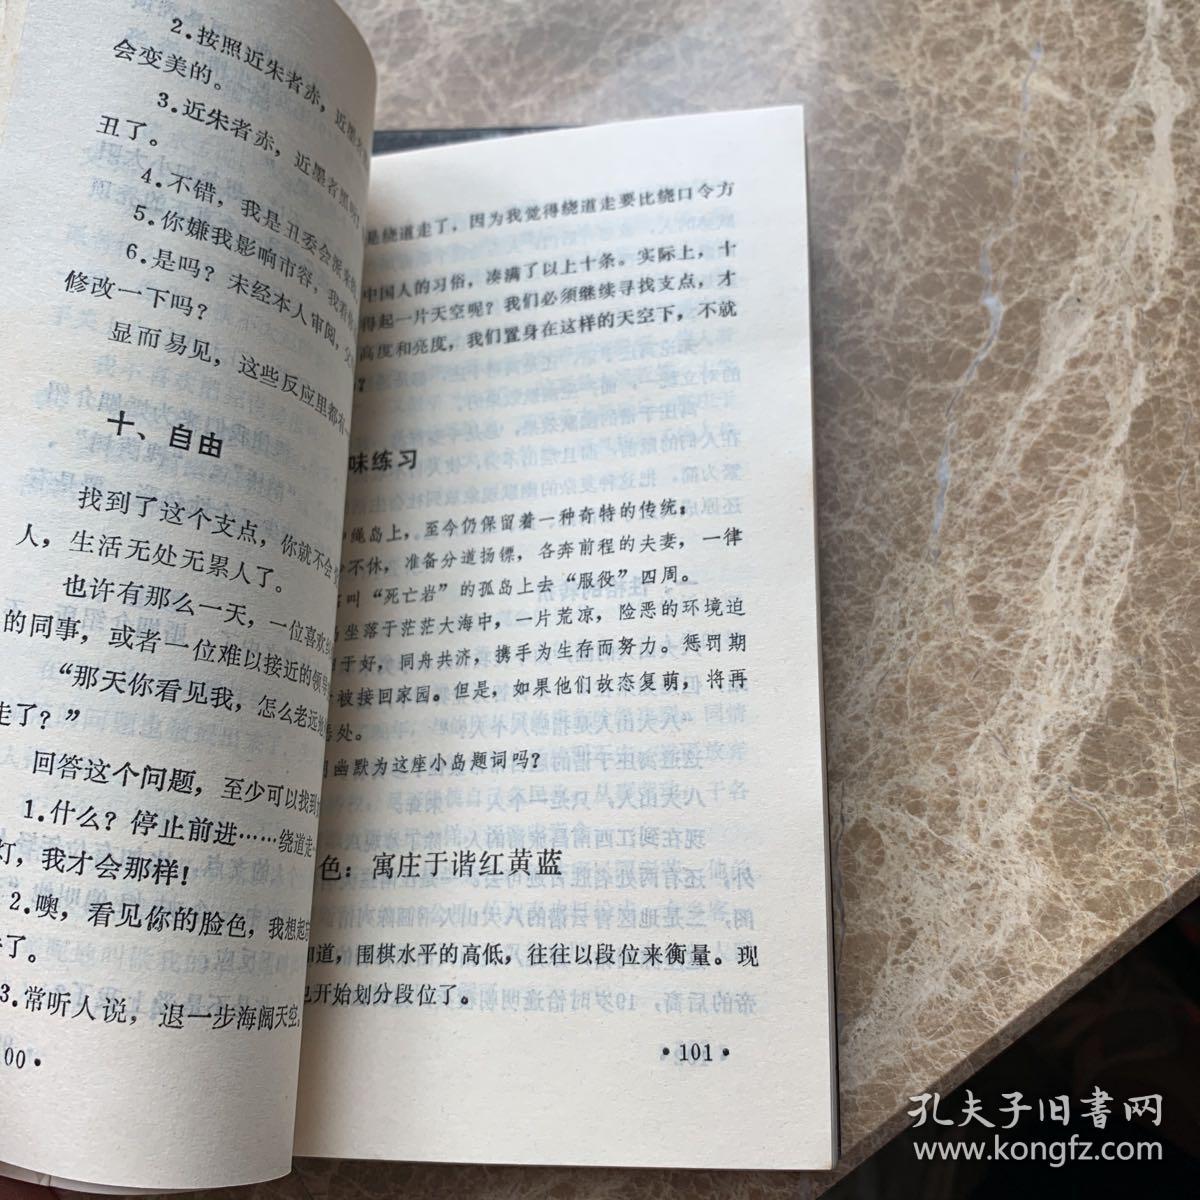 2.按照近朱者赤，近墨
会变美的。
3.近朱者赤，近墨者黑
丑了。
4.不错，我是丑委会派来
5.你嫌我影响市容，我
6.是吗？未经本人审阅，
修改一下吗？
显而易见，这些反应里都有
十、自由
找到了这个支点，你就不会
人，生活无处无累人了。
也许有那么一天，一位喜欢
的同事，或者一位难以接近的领导
“那天你看见我，怎么老远
走了？”
回答这个问题，至少可以找到
1.什么？停止前进……绕道走
灯，我才会那样！
2.噢，看见你的脸色，我想起
了。
3.常听人说，退一步海阔天空，
00·
是绕道走了，因为我觉得绕道走要比绕口令方
中国人的习俗，凑满了以上十条。实际上，十
得起一片天空呢？我们必须继续寻找支点，才
高度和亮度，我们置身在这样的天空下，不就
？
味练习
绳岛上，至今仍保留着一种奇特的传统：
不休，准备分道扬镖，各奔前程的夫妻，一律
叫“死亡岩”的孤岛上去“服役”四周。
坐落于茫茫大海中，一片荒凉，险恶的环境迫
于好，同舟共济，携手为生存而努力。惩罚期
被接回家园。但是，如果他们故态复萌，将再
处。
幽默为这座小岛题词吗？
色：寓庄于谐红黄蓝
知道，围棋水平的高低，往往以段位来衡量。现
也开始划分段位了。
·101·
孔夫子旧书网
www.kongfz.com